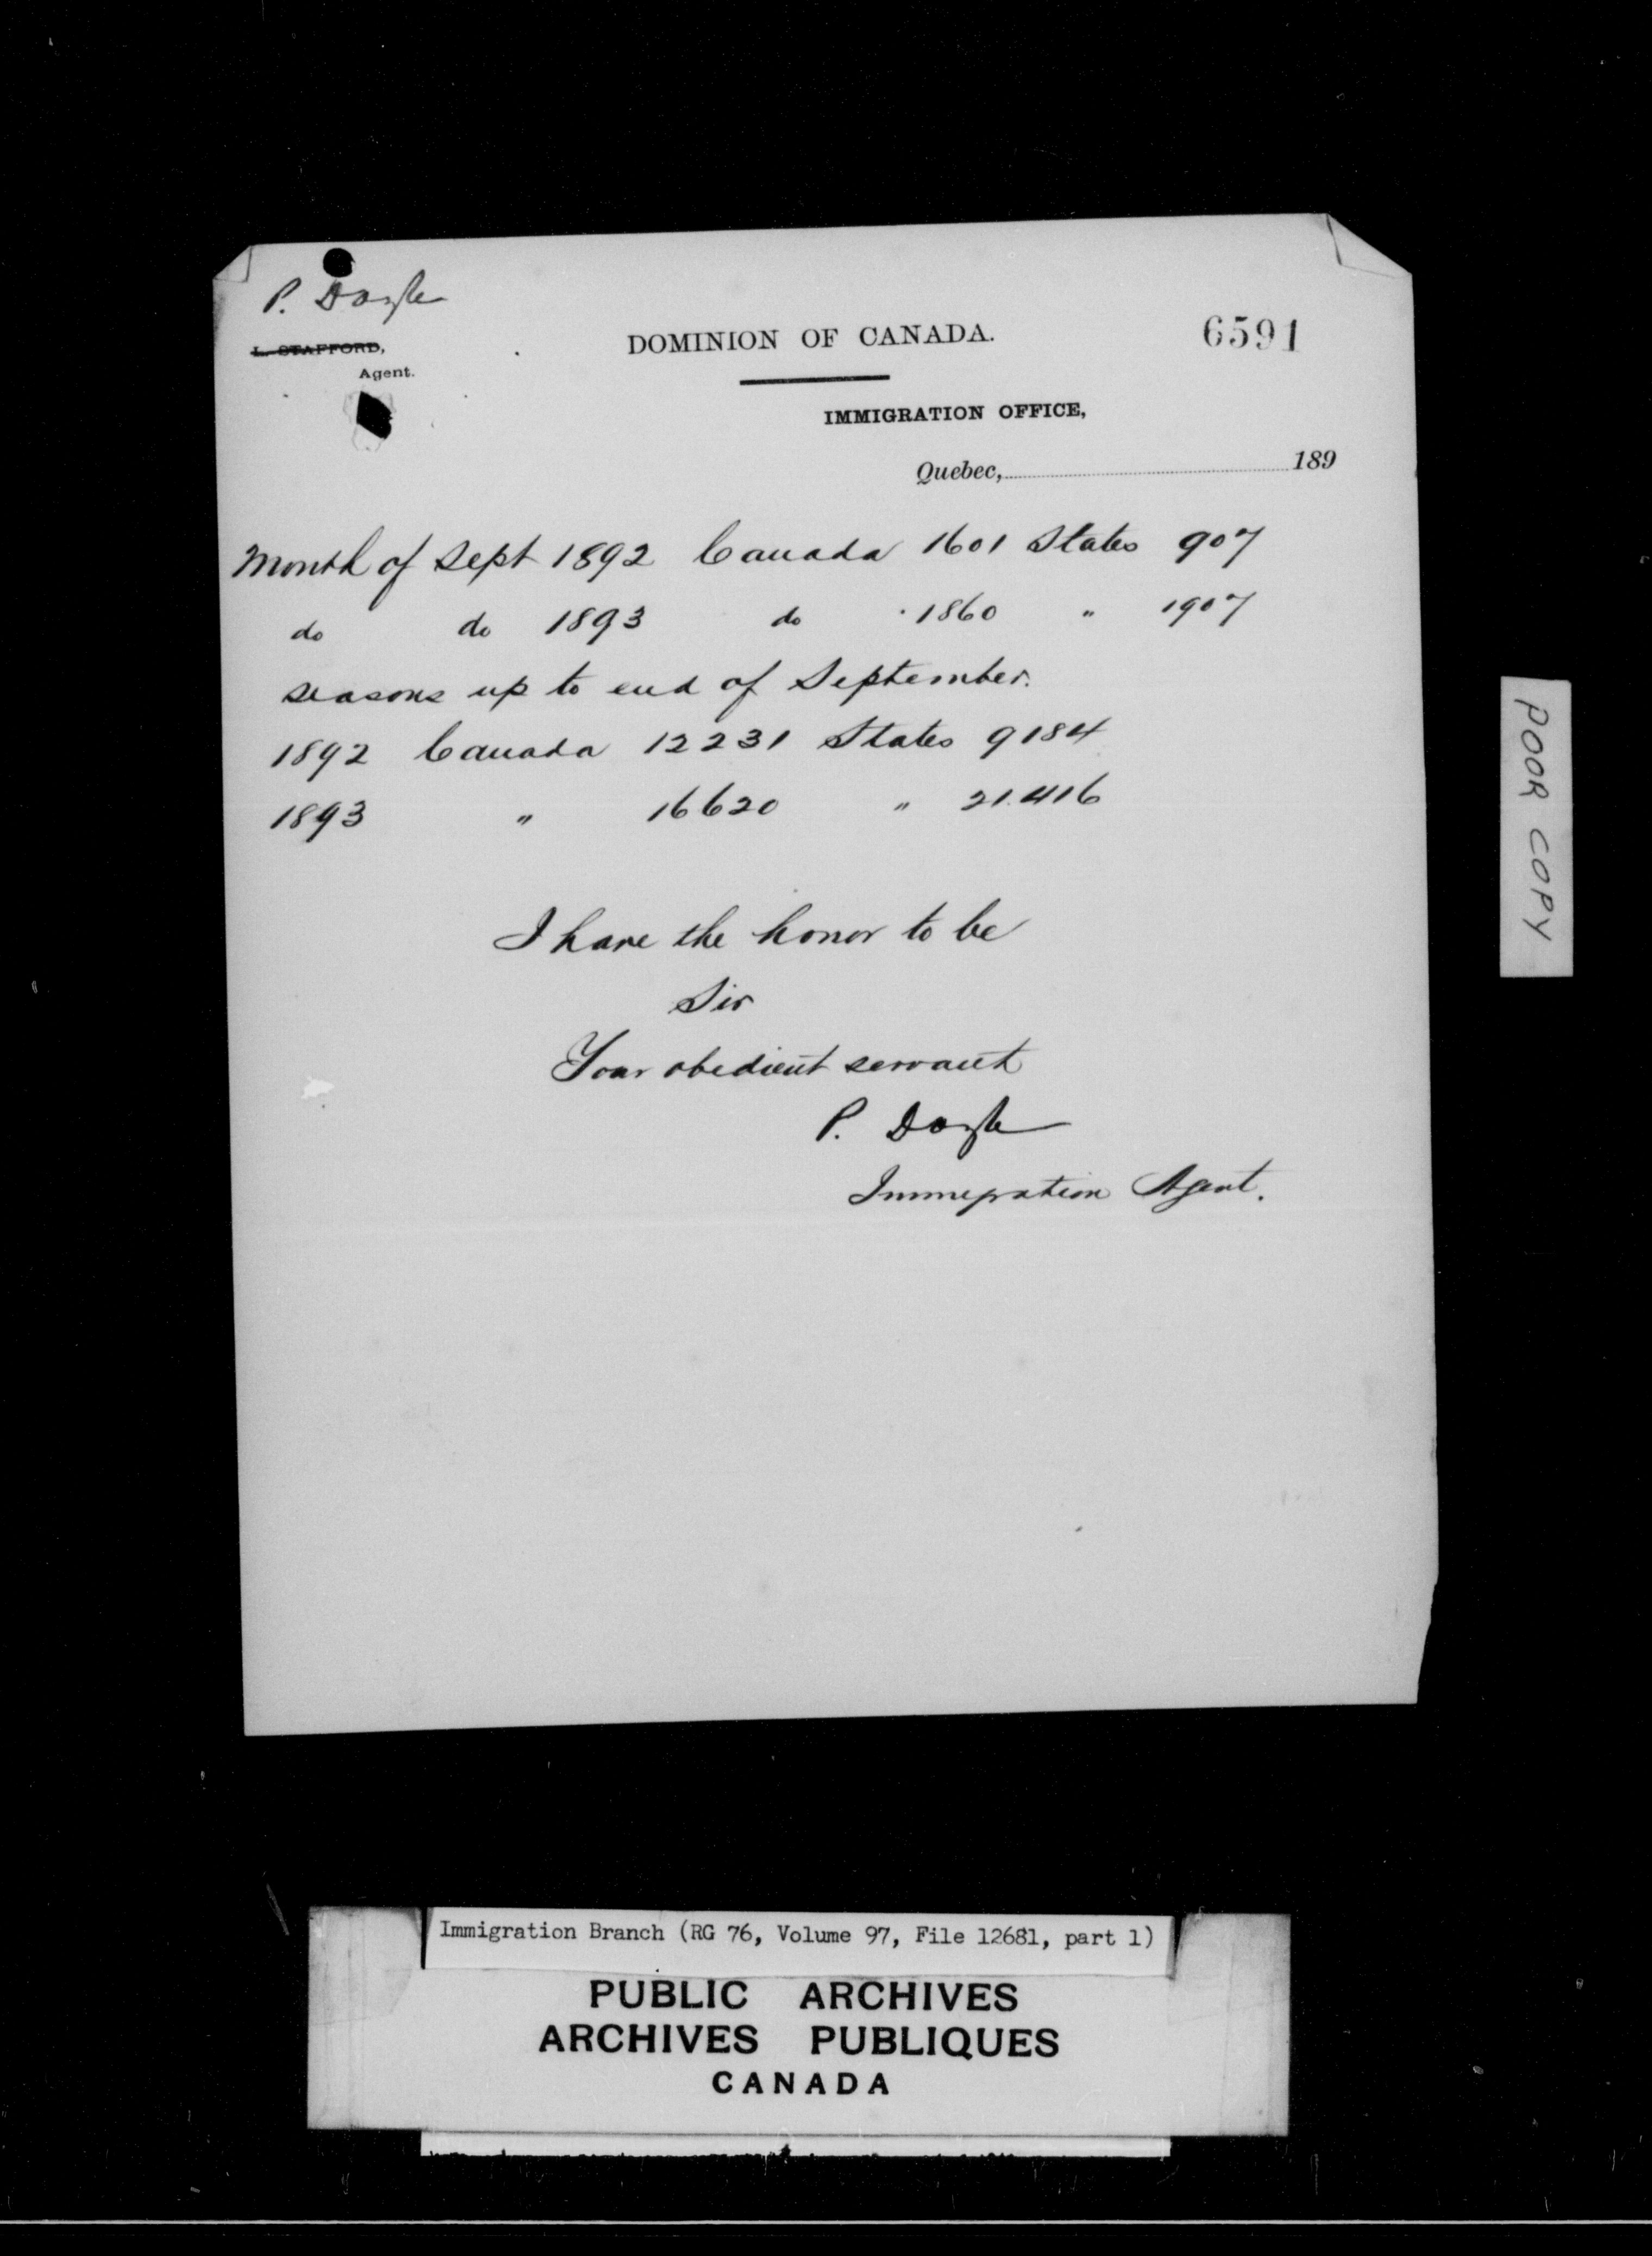 P. Doyle
L. STAFFORD,
Agent.
DOMINION OF CANADA.
6591
IMMIGRATION OFFICE,
Quebec, 189
Month of Sept 1892 Canada 1601 States 907
do do 1893 do 1860 " 1907
seasons up to end of September.
1892 Canada 12231 States 9184
1893 " 16620 " 21.416
I have the honor to be
Sir
Your obedient servant
P. Doyle
Immigration Agent.
POOR COPY
Immigration Branch (RG 76, Volume 97, File 12681, part 1)
PUBLIC ARCHIVES
ARCHIVES PUBLIQUES
CANADA